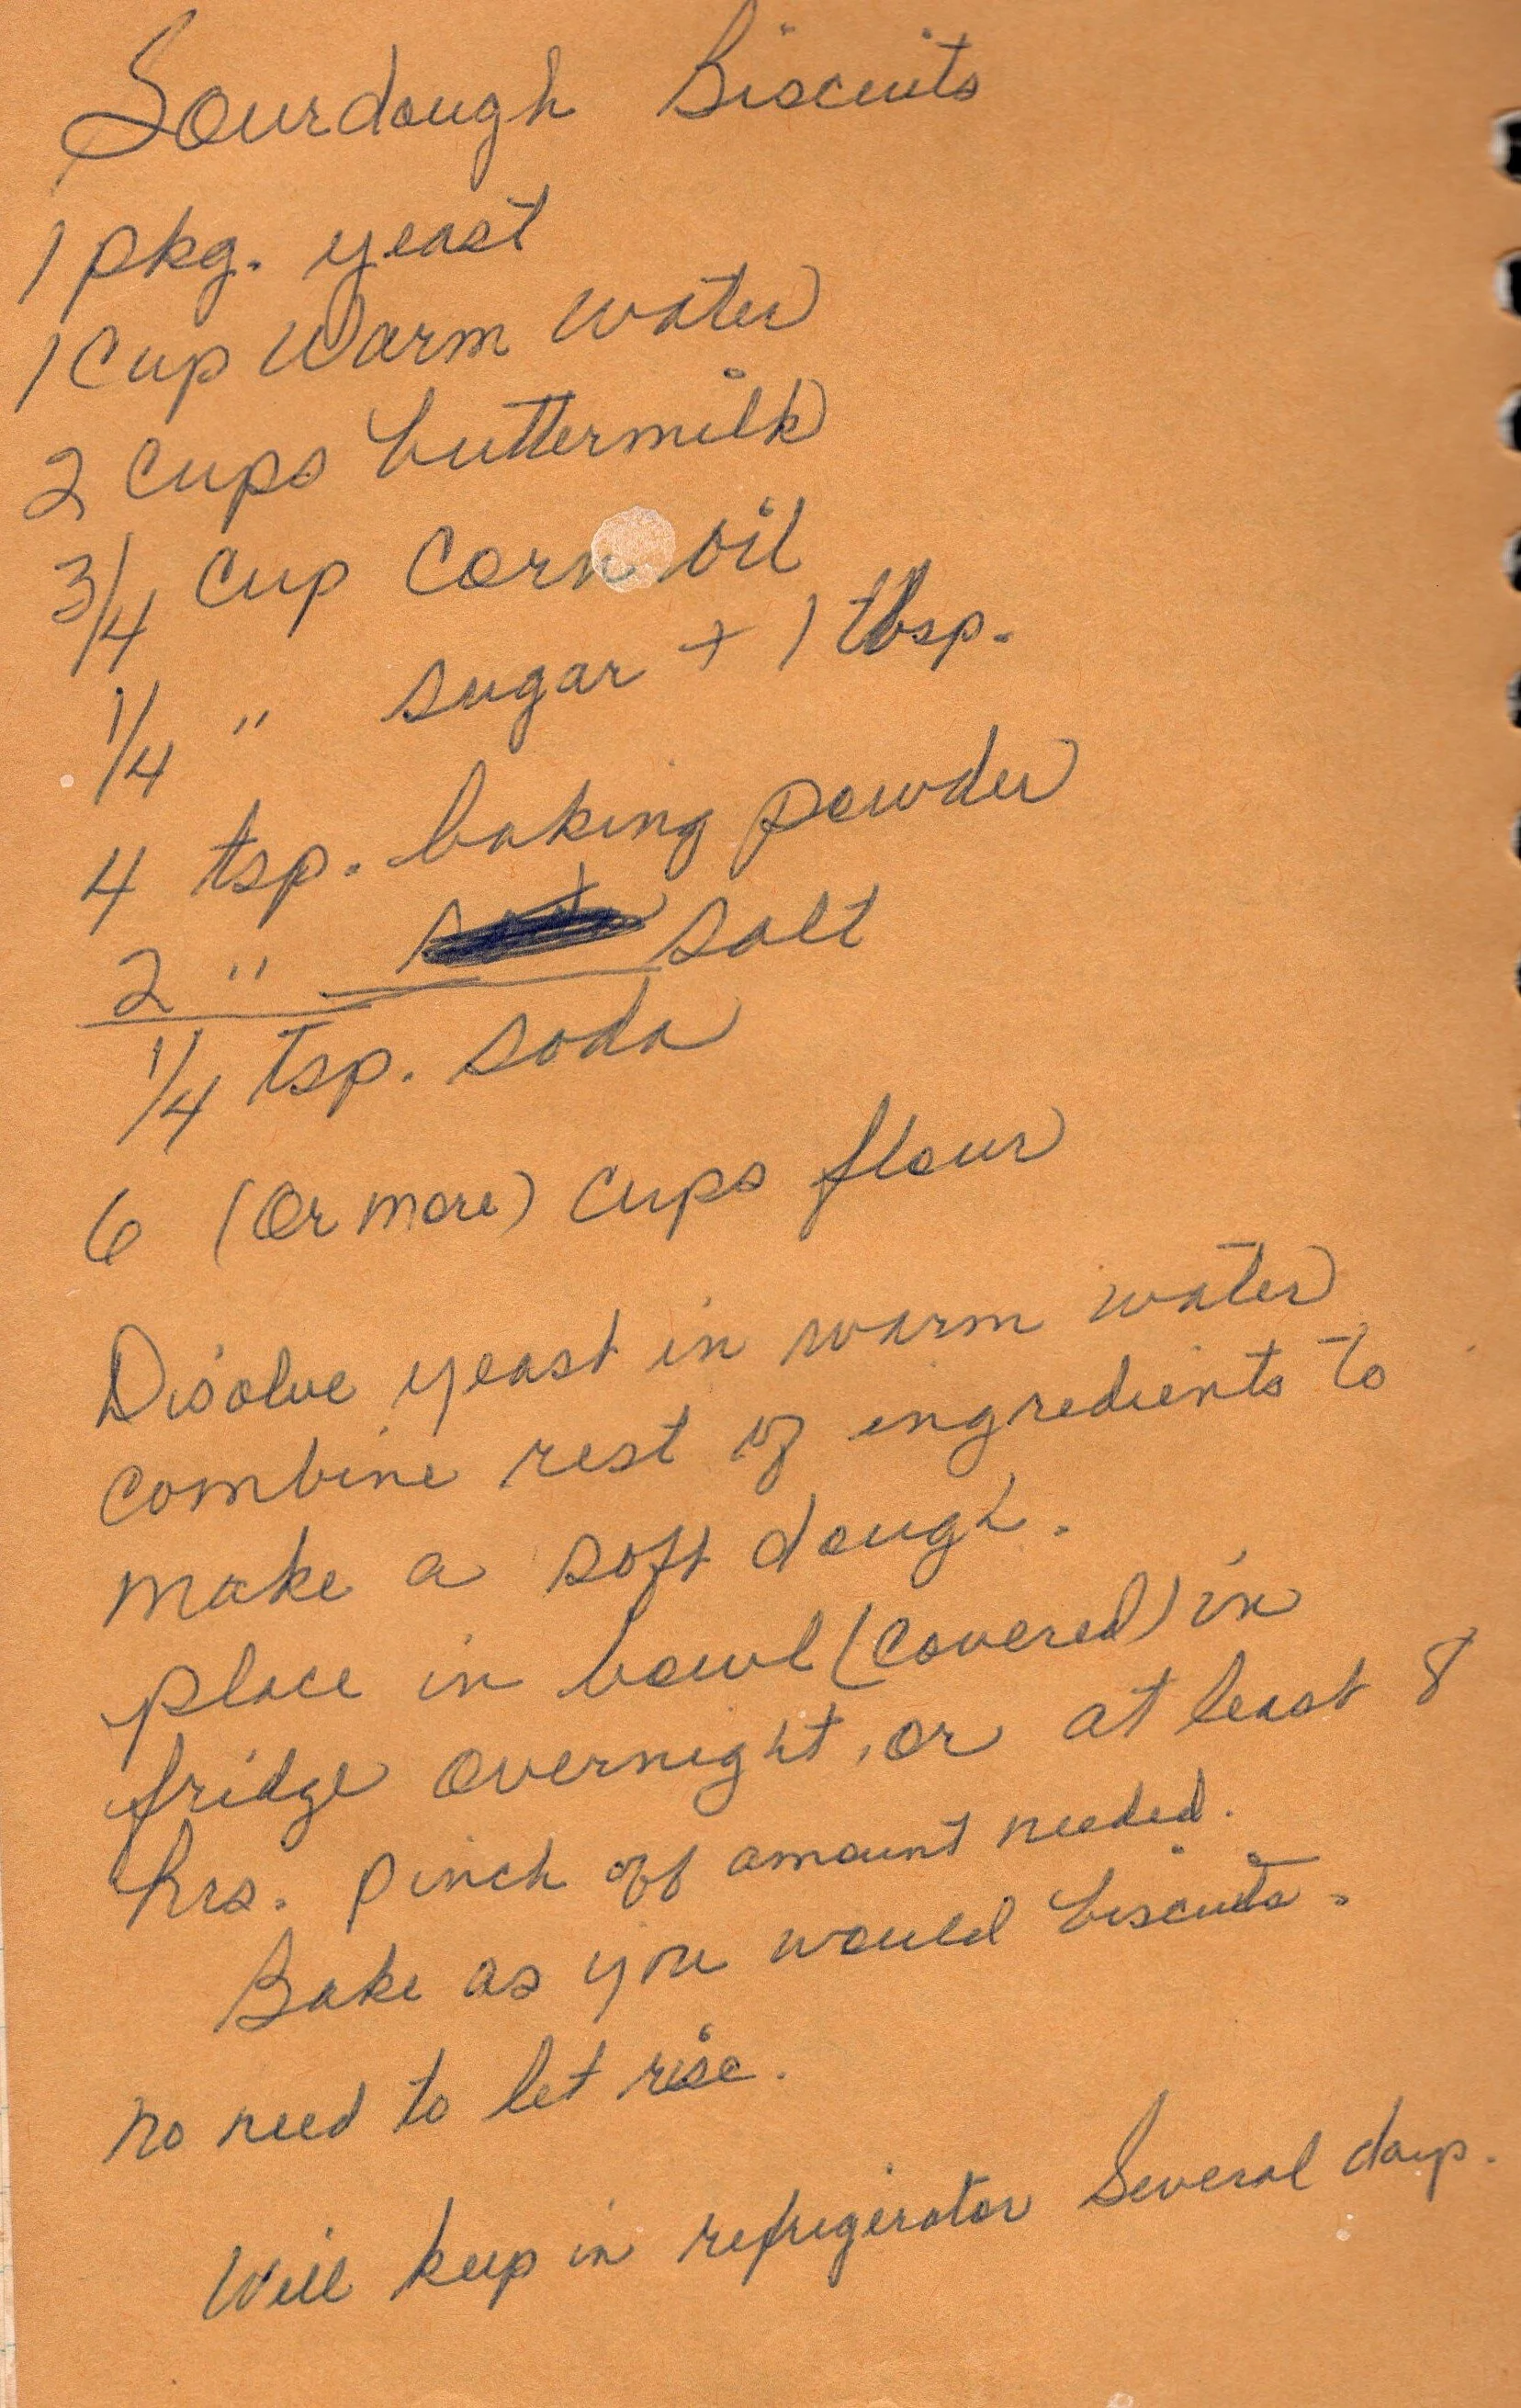 Sourdough Biscuits
1 pkg. yeast
1 Cup Warm Water
2 Cups buttermilk
3/4 Cup Corn oil
1/4 " sugar + 1 tbsp.
4 tsp. baking powder
2 " salt
1/4 tsp. soda
6 (Or more) Cups flour
Disolve yeast in warm water
combine rest of ingredients to
make a soft dough.
place in bowl (Covered) in
fridge overnight, or at least 8
hrs. pinch off amount needed.
Bake as you would biscuits.
no need to let rise.
Will keep in refrigerator Several days.